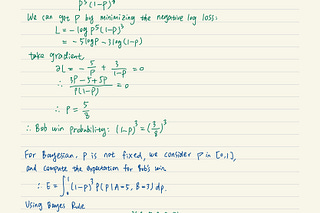 P⁵(1-P)³
We can get P by minimizing the negative log loss:
L = -log P⁵(1-P)³
= -5logP - 3log(1-P)
take gradient
∂L = -5/P + 3/(1-P) = 0
∴ (3P-5+5P)/(P(1-P)) = 0
∴ P = 5/8
∴ Bob win probability: (1-P)³ = (3/8)³
For Bayesian, P is not fixed, we consider P in [0,1],
and compute the expectation for Bob's win
∴ E = ∫₀¹ (1-P)³ P(P|A=5, B=3) dP.
Using Bayes Rule